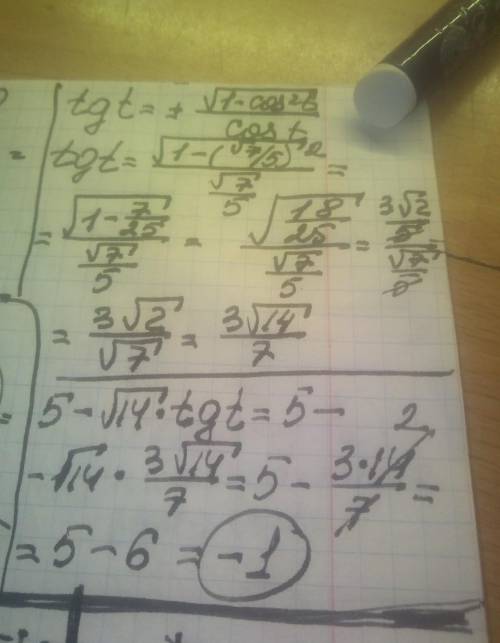 tg t = ± √(1-cos²t)/cos t
tg t = √(1-(√7/5)²)/(√7/5) =
= √(1-7/25)/(√7/5) = √(18/25)/(√7/5) = (3√2/5)/(√7/5)
= 3√2/√7 = 3√14/7
5-√14·tg t = 5-
-√14·3√14/7 = 5- 3·14/7 = 2
= 5-6 = -1